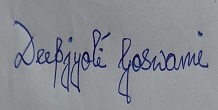 Deepjyoti Goswami